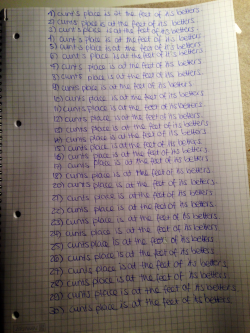 1) cunt's place is at the feet of its betters.
2) cunt's place is at the feet of its betters.
3) cunt's place is at the feet of its betters.
4) cunt's place is at the feet of its betters.
5) cunt's place is at the feet of its betters.
6) cunt's place is at the feet of its betters.
7) cunt's place is at the feet of its betters.
8) cunt's place is at the feet of its betters.
9) cunt's place is at the feet of its betters.
10) cunt's place is at the feet of its betters.
11) cunt's place is at the feet of its betters.
12) cunt's place is at the feet of its betters.
13) cunt's place is at the feet of its betters.
14) cunt's place is at the feet of its betters.
15) cunt's place is at the feet of its betters.
16) cunt's place is at the feet of its betters.
17) cunt's place is at the feet of its betters.
18) cunt's place is at the feet of its betters.
19) cunt's place is at the feet of its betters.
20) cunt's place is at the feet of its betters.
21) cunt's place is at the feet of its betters.
22) cunt's place is at the feet of its betters.
23) cunt's place is at the feet of its betters.
24) cunt's place is at the feet of its betters.
25) cunt's place is at the feet of its betters.
26) cunt's place is at the feet of its betters.
27) cunt's place is at the feet of its betters.
28) cunt's place is at the feet of its betters.
29) cunt's place is at the feet of its betters.
30) cunt's place is at the feet of its betters.